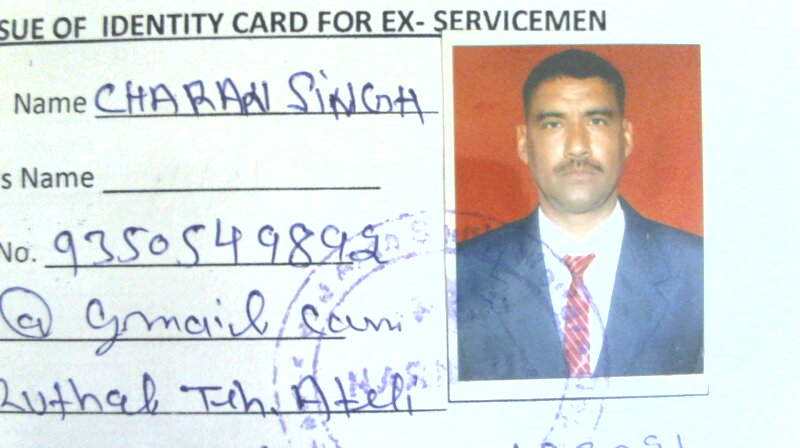 SUE OF IDENTITY CARD FOR EX- SERVICEMEN
Name CHARAN SINGH
s Name
No. 9350549892
@ gmail com
Ateli